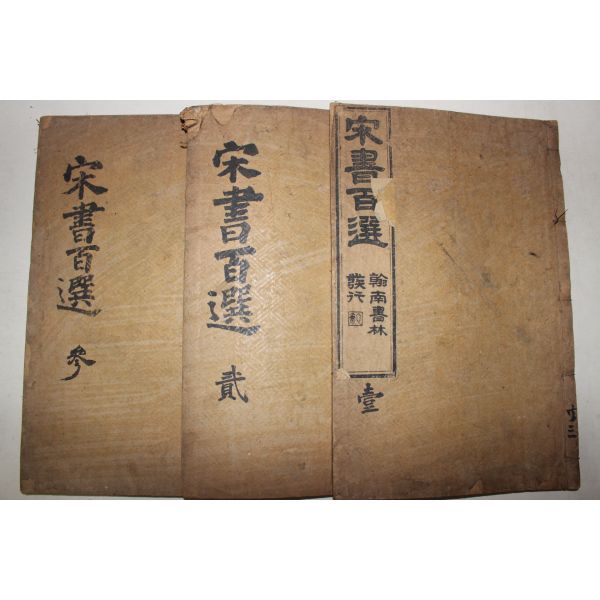 宋書百選
翰南書林
發行
壹
宋書百選
貳
宋書百選
參